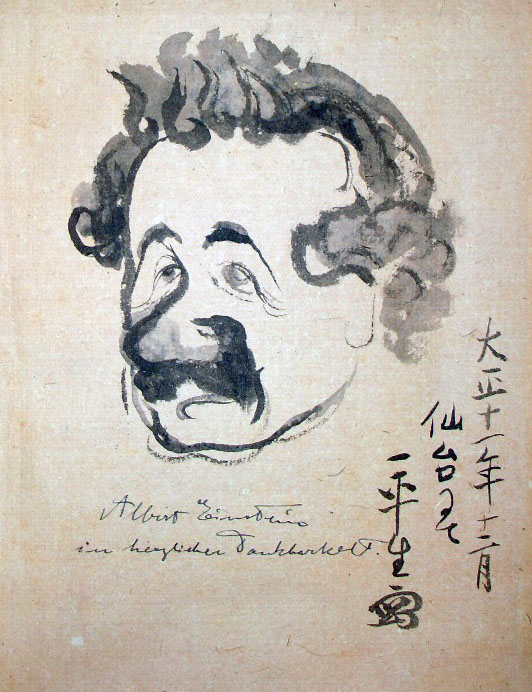 Albert Einstein
in herzlicher Dankbarkeit.
大正十一年十二月
仙台にて
一平生寫